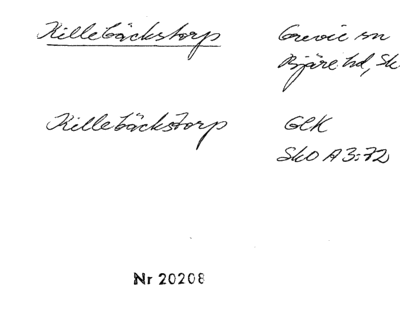 Killebäckstorp
Grevie sn
Bjäre hd, Sk
Killebäckstorp
GEK
SkO A3:72
Nr 20208